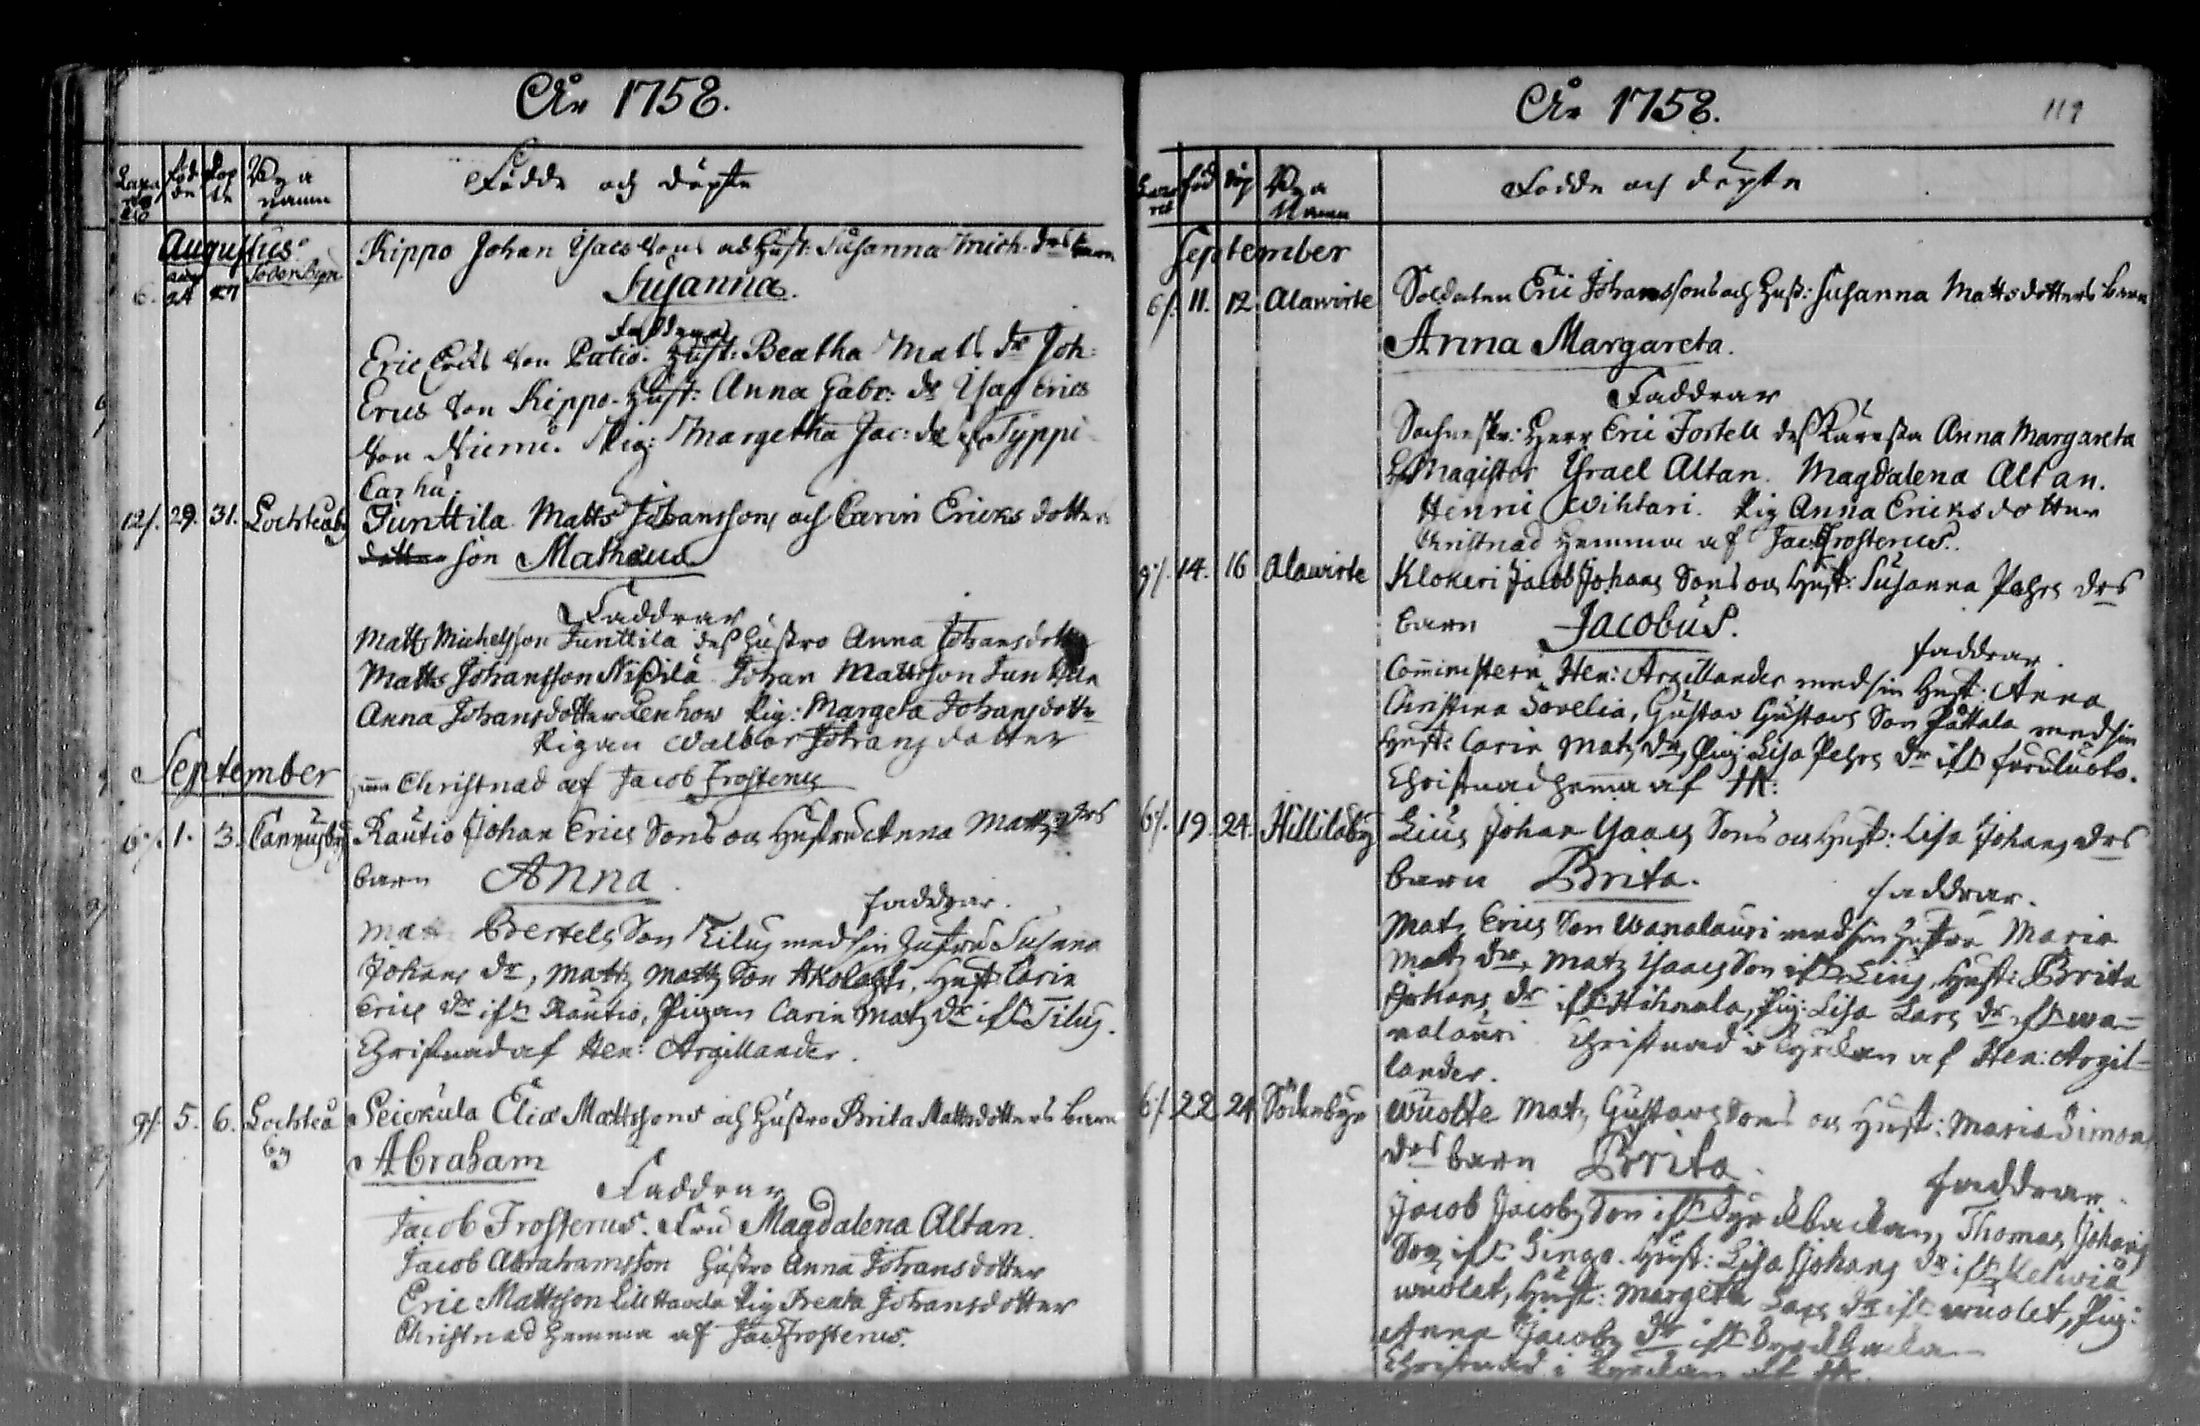 År 1758.
Föd de
Döp te
Bya namn
Födde och döpte
Augustus
6.
24
27
Söderbyn
Kippo Johan Isacs Sons och Hust: Susanna Mich. drs barn
Susanna.
Faddrar
Eric Erics Son Hust: Beatha Mats dr Joh:
Erics Son Kippo. Hust: Anna Gabr: dr Isac Erics
Son Niemi. Pig: Margetha Jac: dr Typpi
Carhu.
12/. 29. 31. Lochteåby
Junttila Matts Johanssons och Carin Ericks dotters
son Matheus
Faddrar
Matts Michelsson Junttila des hustro Anna Johansdotter
Matts Johansson Niskila Johan Mattsson Junttila
Anna Johansdotter Pig: Margeta Johansdotter
Pigan Walbor Johansdotter
Christnad af Jacob Frosterus
September
6/. 1. 3. Cannusby
Rautio Johan Erics Sons och Hustru Anna Matz drs
barn Anna.
faddrar.
Matz Bertels Son Tilus med sin hustru Susanna
Johans dr, Matz Matz Son, Hust Carin
Erics dr ifr. Rautio, Pigan Carin Matz dr ifr. Tilus.
Christnad af Hen: Argillander.
9/. 5. 6. Lochteå by
Peickula Elia Mattssons och hustro Brita Mattsdotters barn
Abraham
Faddrar
Jacob Frosterus. Fru Magdalena Altan.
Jacob Abrahamsson hustro Anna Johansdotter
Eric Mattsson Pig Breata Johansdotter
Christnad hemma af Jac Frosterus.
År 1758.
119
föd
döp
Bya Namn
Födde och döpte
September
6/. 11. 12 Alawirte
Soldaten Eric Johanssons och Hust: Susanna Mattsdotters barn
Anna Margareta.
Faddrar
Herr Eric Fortell des Käresta Anna Margareta
Magister Israel Altan. Magdalena Altan.
Henric Wihtari. Pig Anna Ericksdotter
Christnad hemma af Jac Frosterus.
9/. 14. 16 Alawirte
Klokeri Jacob Johans Sons och Hust: Susanna Pehrs drs
barn Jacobus.
faddrar.
Com̄inistern Hen: Argillander med sin Hust: Anna
Christina Sovelia, Gustav Gustavs Son Påttala med sin
Hust: Carin Matz dr, Pig: Lisa Pehrs dr ifr.
Christnad hem̄a af
6/. 19. 24. Hillilåby
Lius Johan Isaacs Sons och Hust: Lisa Johans drs
barn Brita.
faddrar.
Matz Erics Son Wanalauri med sin hustru Maria
Matz dr, Matz Isaacs Son ifr Lius, Hust: Brita
Johans dr ifr Hihnala, Pig: Lisa Lars dr ifr wa=
nalauri. Christnad i kyrckan af Hen: Argil=
lander.
6/. 22 24 Söderbyn
Wuolte Matz Gustavs Sons och Hust: Maria Simons
drs barn Brita.
faddrar.
Jacob Jacobs Son ifr Kyrckbackan, Thomas Johans
Son ifr Hust: Lisa Johans dr ifr Kelwiå
wuolet, Hust: Margeta Lars dr ifr wuolet, Pig:
Anna Jacobs dr ifr Kyrckbackan
Christnad i kyrckan af